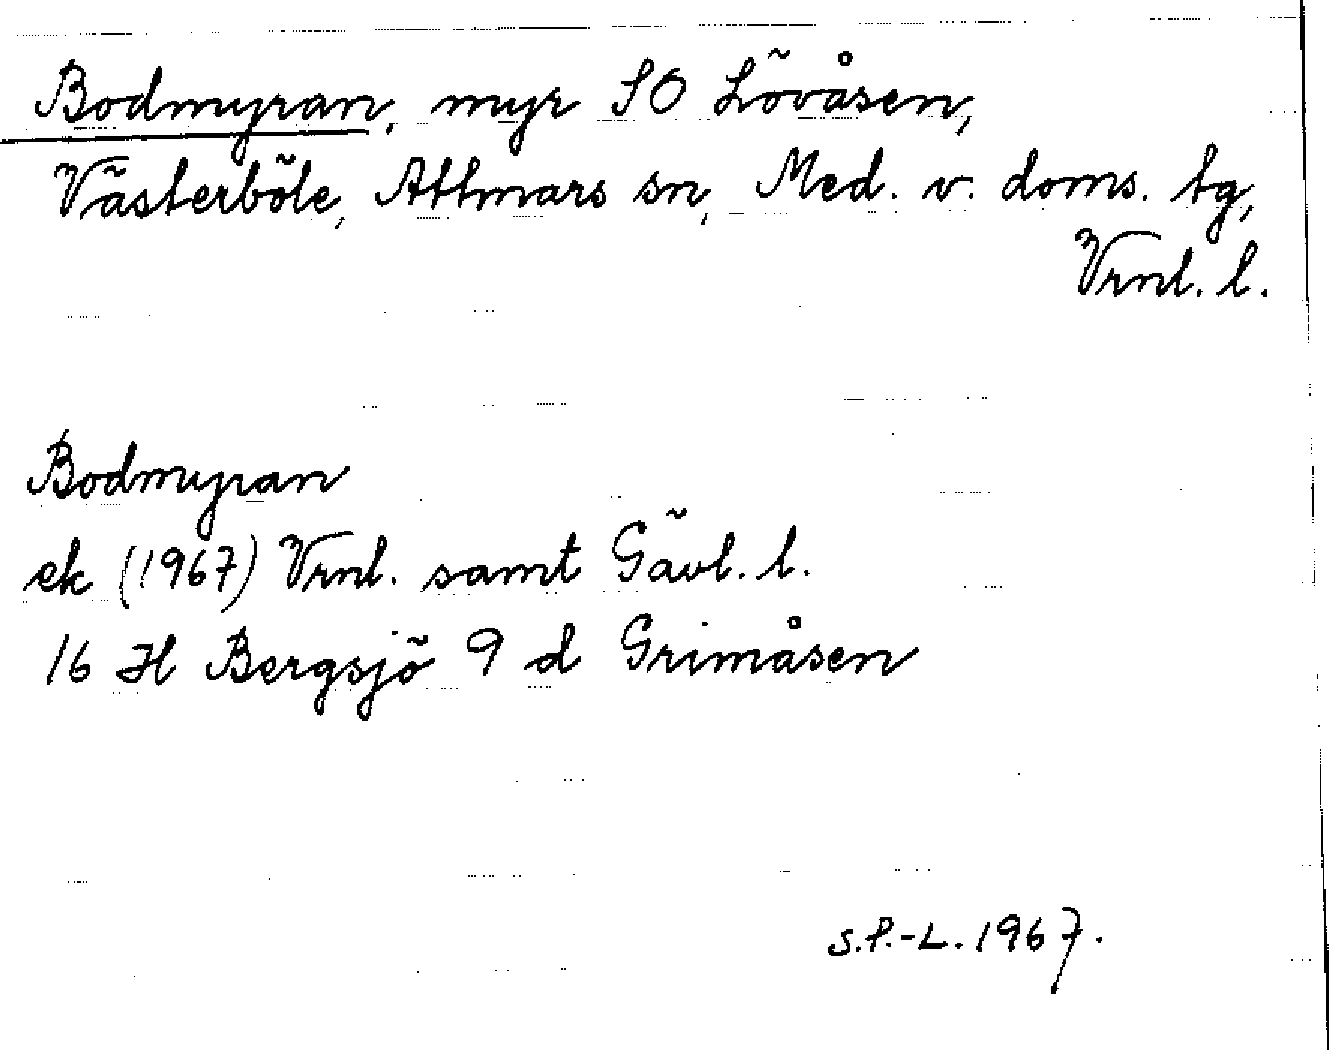 Bodmyran, myr SO Lövåsen,
Västerböle, Attmars sn, Med. v. doms. tg,
Vrnl. l.
Bodmyran
ek (1967) Vrnl. samt Gävl. l.
16 H Bergsjö 9 d Grimåsen
S.P.-L. 1967.